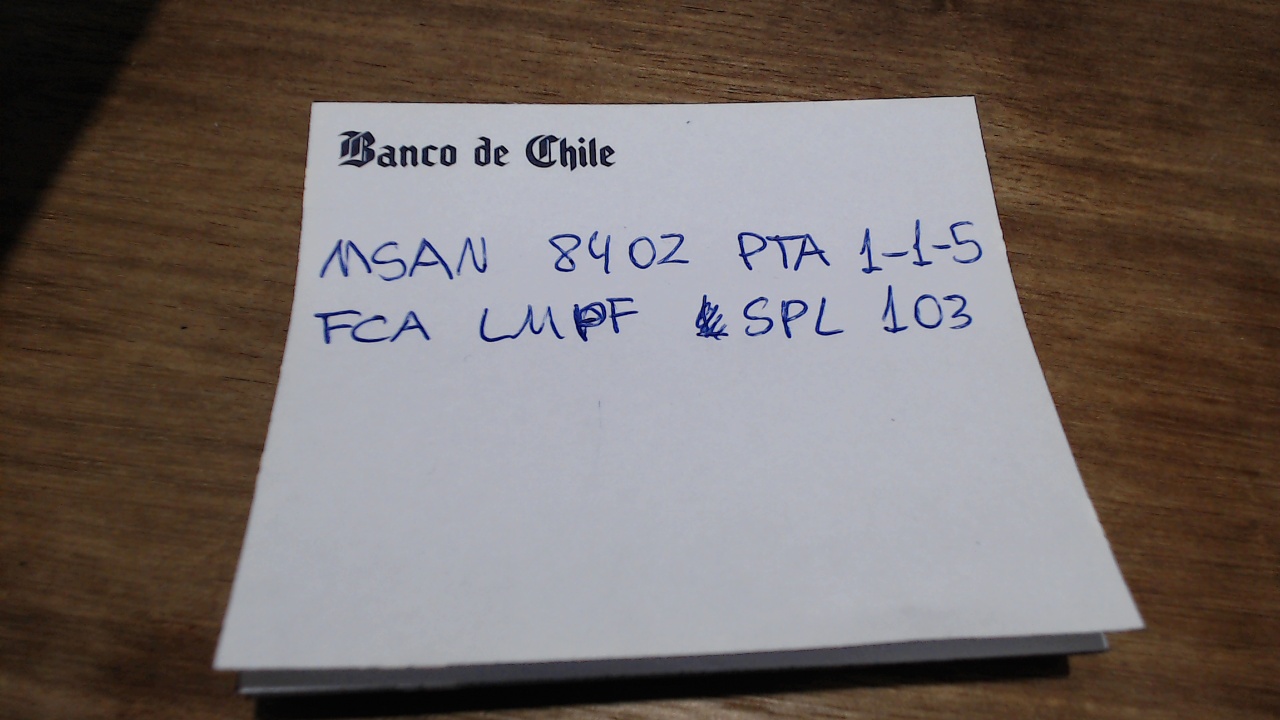 Banco de Chile
MSAN 8402 PTA 1-1-5
FCA LMPF SPL 103